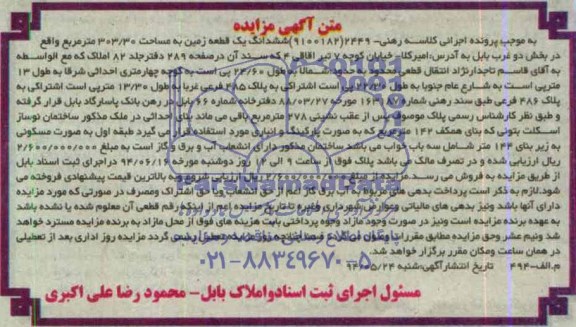 متن آگهی مزایده
به موجب پرونده اجرائی کلاسه رهنی- ۲۴۴۹(۹۱۰۰۱۸۲)ششدانگ یک قطعه زمین به مساحت ۳۰۳/۳۰ مترمربع واقع
در بخش دو غرب بابل به آدرس:امیرکلا-خیابان کوچه ۷ تیر اقاقی ۴ که سند آن درصفحه ۲۸۹ دفترجلد ۸۲ املاک که مع الواسطه
به آقای قاسم تاجدارنژاد انتقال قطعی شمالا به طول ۲۲/۶۰ به کوچه چهارمتری احداثی شرقا به طول ۱۳
متریی است به شارع عام جنوبا به طول است اشتراکی به پلاک ۴۸۵ فرعی غربا به طول ۱۳/۳۰ متریی است اشتراکی به
پلاک ۴۸۶ فرعی طبق سند رهنی شماره مورخه ۸۸/۰۳/۲۷ دفترخانه شماره ۶۶ بابل در رهن بانک پاسارگاد بابل قرار گرفته
و طبق نظر کارشناس رسمی پلاک موصوف پس از عقب نشینی ۲۷۸ مترمربع باقی می ماند بنای احداثی در ملک مذکور ساختمان نوساز
اسکلت بتونی که بنای همکف ۱۴۲ مترمربع که به صورت پارکینگ و انباری مورد استفاده قرار می گیرد طبقه اول به صورت مسکونی
به زیر بنای ۱۴۴ متر شامل سه باب خواب می باشد ساختمان مذکور دارای انشعاب آب و برق و گاز است به مبلغ ۲/۶۰۰/۰۰۰/۰۰۰
ریال ارزیابی شده و در تصرف مالک می باشد پلاک فوق از ساعت ۹ الی ۱۲ روز دوشنبه مورخ ۹۴/۰۶/۱۶ دراجرای ثبت اسناد بابل
از طریق مزایده به فروش می رسد مزایده از مبلغ ۲/۶۰۰/۰۰۰/۰۰۰ ریال ارزیابی شروع و به بالاترین قیمت پیشنهادی فروخته می
شود.لازم به ذکر است پرداخت بدهی های مربوط به آب، برق، گاز اعم از حق انشعاب و یا حق اشتراک ومصرف در صورتی که مورد مزایده
دارای آنها باشد ونیز بدهی های مالیاتی وعوارض شهرداری وغیره تا تاریخ مزایده اعم از اینکه رقم قطعی آن معلوم شده یا نشده باشد
به عهده برنده مزایده است ونیز در صورت وجود مازاد وجوه پرداختی بابت هزینه های فوق از محل مازاد به برنده مزایده مسترد خواهد
شد ونیم عشر وحق مزایده مطابق مقررات وصول می گردد مزایده روز اداری بعد از تعطیلی
در همان ساعت ومکان مقرر برگزار خواهد شد.
م.الف-۴۹۴ تاریخ انتشار آگهی:شنبه ۹۴/۰۵/۲۴
۰۲۱-۸۸۳۴۹۶۷۰-۵
مسئول اجرای ثبت اسنادواملاک بابل- محمود رضا علی اکبری